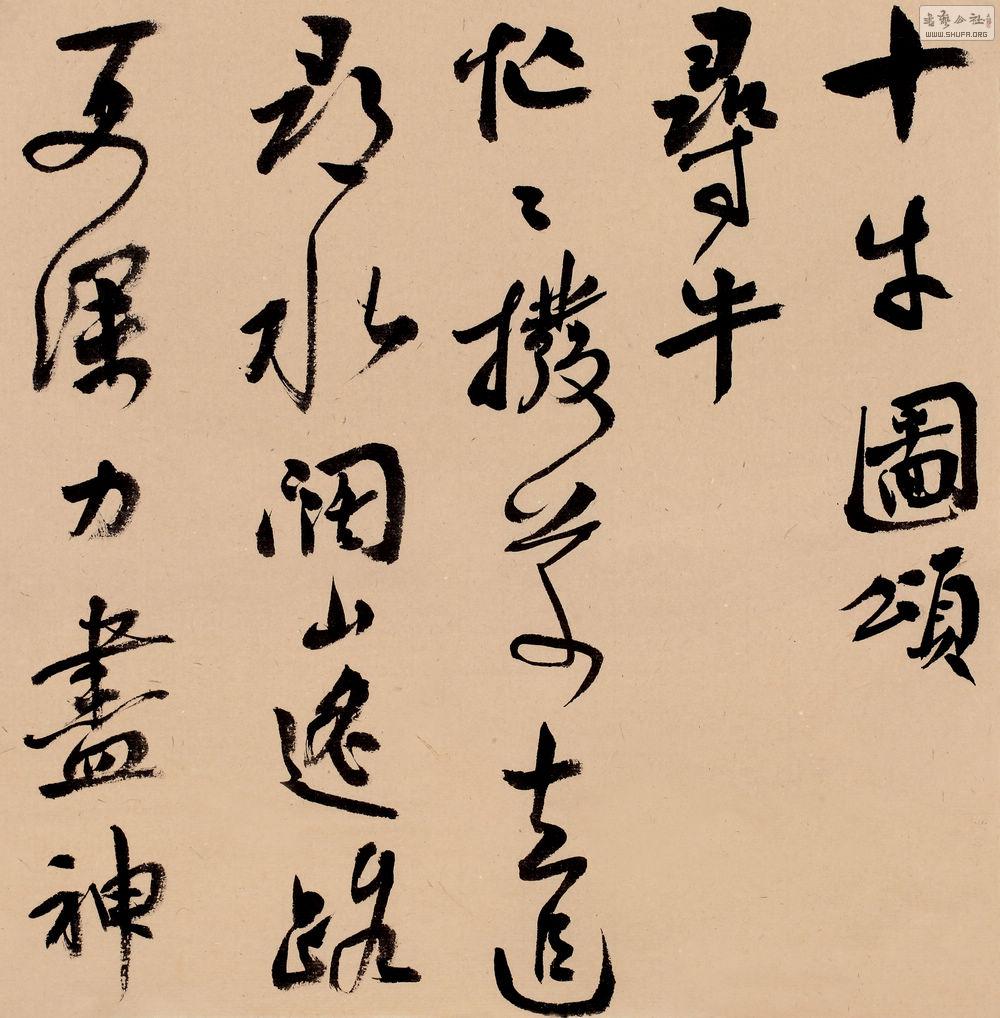 十牛圖頌
尋牛
忙〻撥草去追
尋水闊山遙路
更深力盡神
書藝公社
WWW.SHUFA.ORG